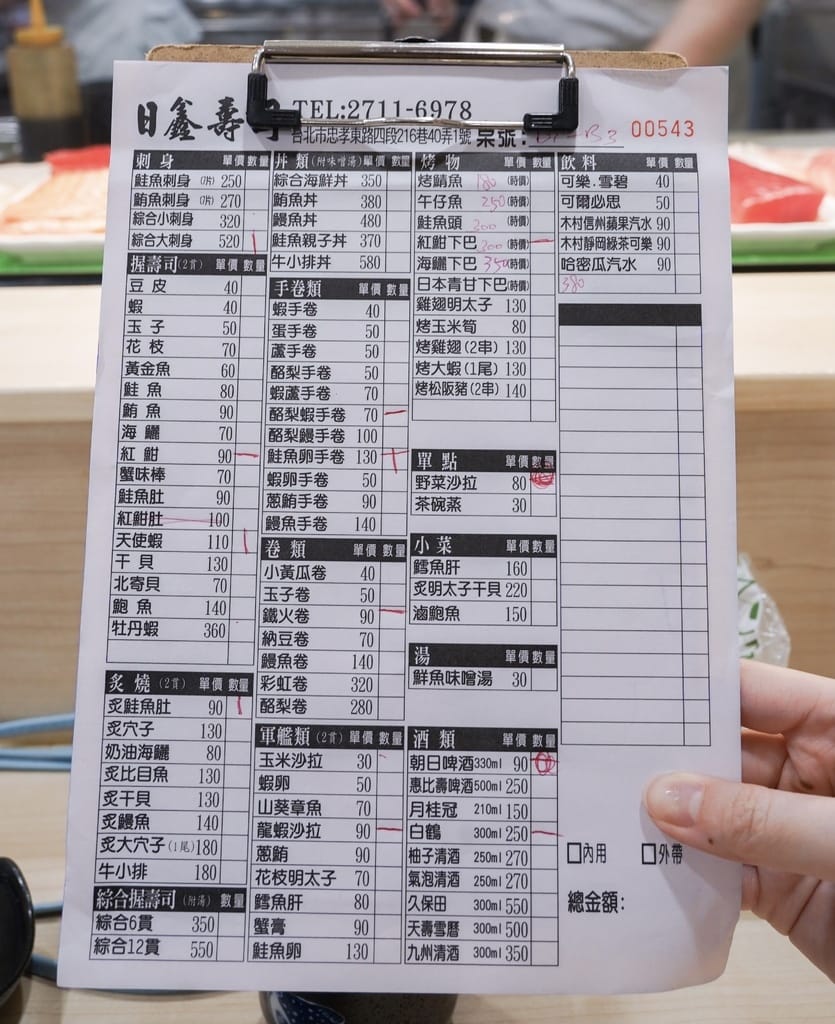 日鑫壽司
TEL:2711-6978
台北市忠孝東路四段216巷40弄1號 桌號: 00543
刺身 單價 數量
鮭魚刺身(7片) 250
鮪魚刺身(7片) 270
綜合小刺身 320
綜合大刺身 520
握壽司(2貫) 單價 數量
豆皮 40
蝦 40
玉子 50
花枝 70
黃金魚 60
鮭魚 80
鮪魚 90
海鱺 70
紅魽 90
蟹味棒 70
鮭魚肚 90
紅魽肚 100
天使蝦 110
干貝 130
北寄貝 70
鮑魚 140
牡丹蝦 360
炙燒(2貫) 單價 數量
炙鮭魚肚 90
炙穴子 130
奶油海鱺 80
炙比目魚 130
炙干貝 130
炙鰻魚 140
炙大穴子(1尾) 180
牛小排 180
綜合握壽司(附湯) 數量
綜合6貫 350
綜合12貫 550
丼類(附味噌湯) 單價 數量
綜合海鮮丼 350
鮪魚丼 380
鰻魚丼 480
鮭魚親子丼 370
牛小排丼 580
手卷類 單價 數量
蝦手卷 40
蛋手卷 50
蘆手卷 50
酪梨手卷 50
蝦蘆手卷 70
酪梨蝦手卷 70
酪梨鰻手卷 100
鮭魚卵手卷 130
蝦卵手卷 50
蔥鮪手卷 90
鰻魚手卷 140
卷類 單價 數量
小黃瓜卷 40
玉子卷 50
鐵火卷 90
納豆卷 70
鰻魚卷 140
彩虹卷 320
酪梨卷 280
軍艦類(2貫) 單價 數量
玉米沙拉 30
蝦卵 50
山葵章魚 70
龍蝦沙拉 90
蔥鮪 90
花枝明太子 70
鱈魚肝 80
蟹膏 90
鮭魚卵 130
烤物 單價 數量
烤鯖魚 180 (時價)
午仔魚 250 (時價)
鮭魚頭 200 (時價)
紅魽下巴 200 (時價)
海鱺下巴 350 (時價)
日本青甘下巴 (時價) 380
雞翅明太子 130
烤玉米筍 80
烤雞翅(2串) 130
烤大蝦(1尾) 130
烤松阪豬(2串) 140
單點 單價 數量
野菜沙拉 80
茶碗蒸 30
小菜 單價 數量
鱈魚肝 160
炙明太子干貝 220
滷鮑魚 150
湯 單價 數量
鮮魚味噌湯 30
酒類 單價 數量
朝日啤酒 330ml 90
惠比壽啤酒 500ml 250
月桂冠 210ml 150
白鶴 300ml 250
柚子清酒 250ml 270
氣泡清酒 250ml 270
久保田 300ml 550
天壽雪曆 300ml 500
九州清酒 300ml 350
飲料 單價 數量
可樂.雪碧 40
可爾必思 50
木村信州蘋果汽水 90
木村靜岡綠茶可樂 90
哈密瓜汽水 90
□內用 □外帶
總金額: